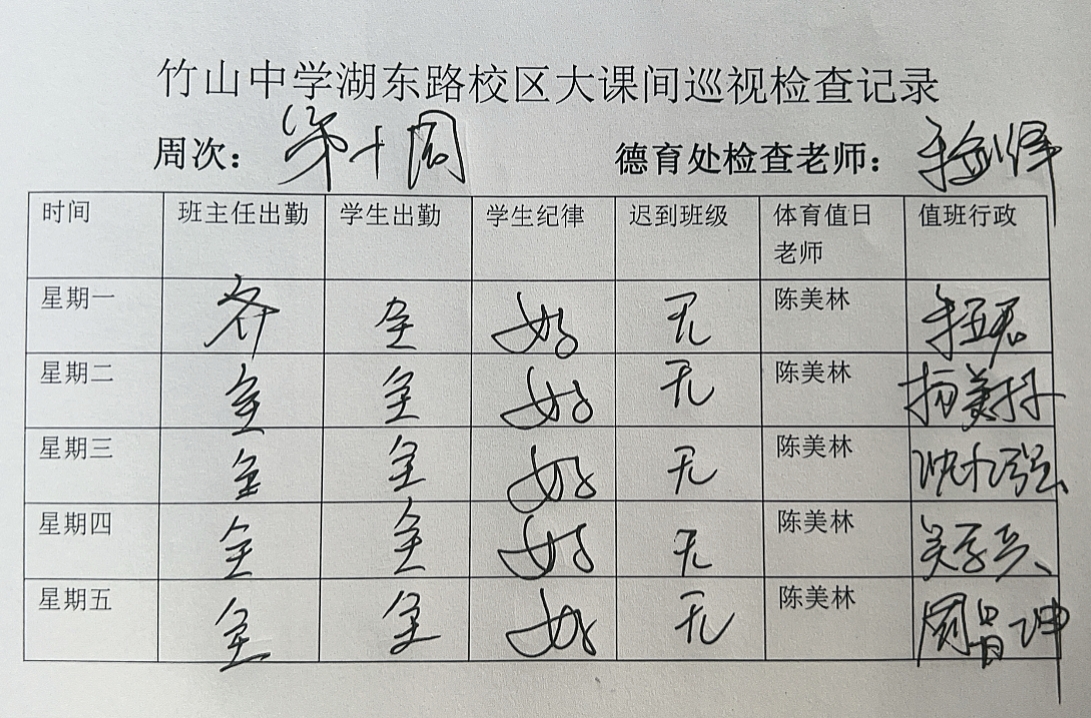 竹山中学湖东路校区大课间巡视检查记录
周次：第十周 德育处检查老师：
时间 班主任出勤 学生出勤 学生纪律 迟到班级 体育值日老师 值班行政
星期一 齐 全 好 无 陈美林
星期二 全 全 好 无 陈美林
星期三 全 全 好 无 陈美林
星期四 全 全 好 无 陈美林
星期五 全 全 好 无 陈美林 周昌坤